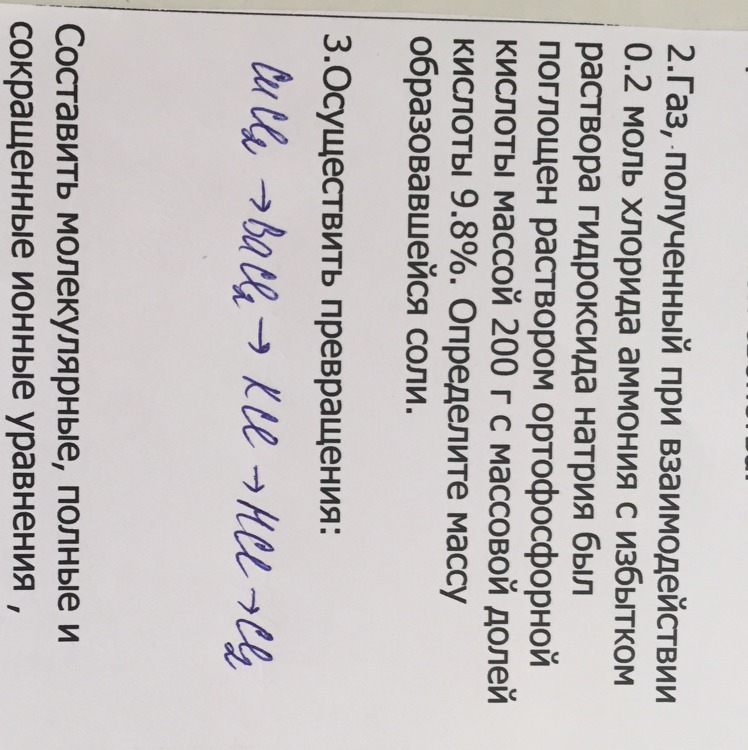 2.Газ, полученный при взаимодействии
0.2 моль хлорида аммония с избытком
раствора гидроксида натрия был
поглощен раствором ортофосфорной
кислоты массой 200 г с массовой долей
кислоты 9.8%. Определите массу
образовавшейся соли.
3.Осуществить превращения:
CuCl₂ → BaCl₂ → KCl → HCl → Cl₂
Составить молекулярные, полные и
сокращенные ионные уравнения ,